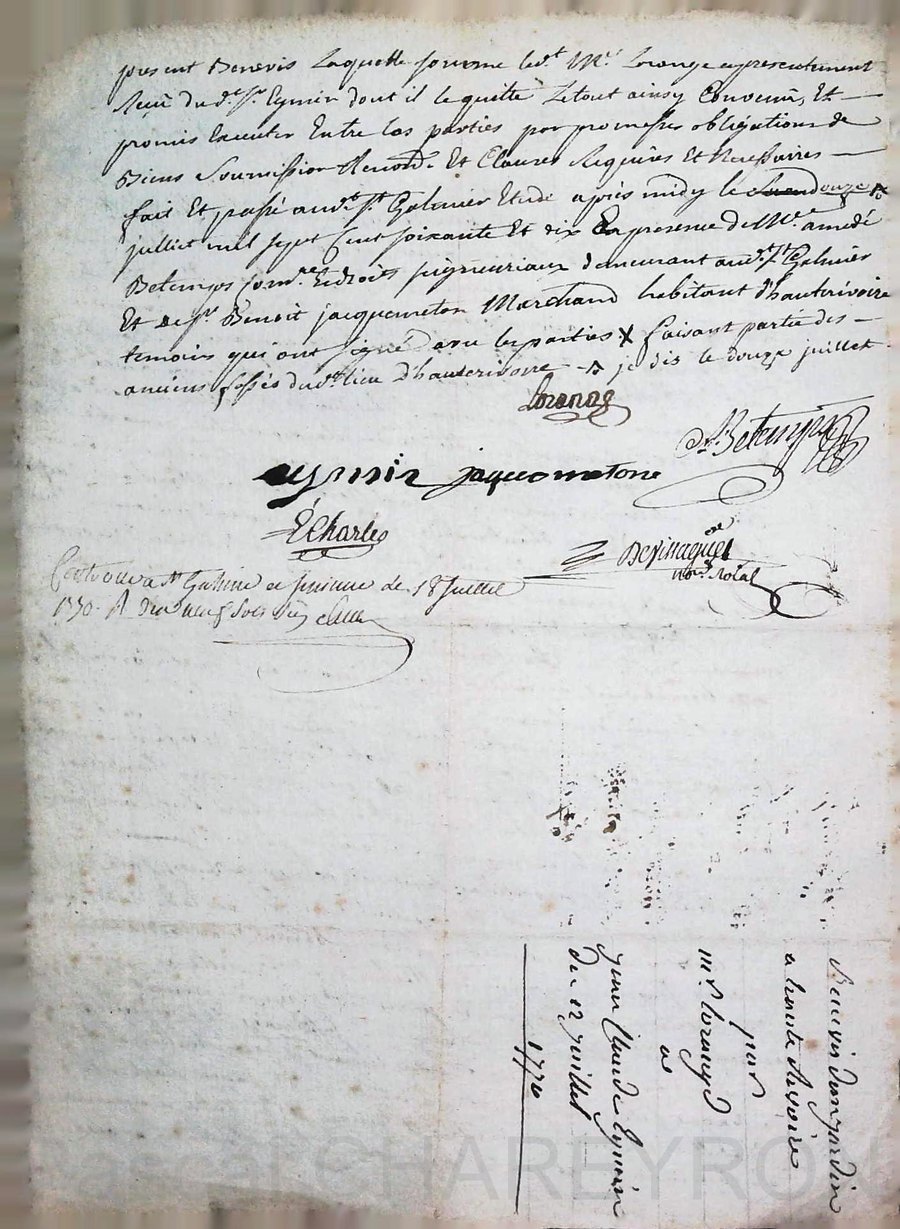 present Benevis Laquelle somme led.t M.r Lorange a presentement
Reçu du d.t S.r Eymin dont il le quitte Le tout ainsy Convenu, Et —
promis Executer Entre les parties par promesses obligations de
Biens Soumission Renond. Et Clauses Requises Et Necessaires —
fait Et passé aud.t S.t Galmier Etude après midy le douze
juillet mil sept Cent soixante Et dix En presence de M.e amedé
Betemps Com.re Endroits seigneuriaux demeurant aud.t S.t Galmier
Et de S.r Benoit jacquemeton Marchand habitant d'hauterivoire
temoins qui ont signé avec les parties X faisant partie des —
anciens fossés dud.t lieu d'hauterivoire — je dis le douze juillet
Lorange
Betemps
eymin jacquometone
Charles
Devinague
No.re Roïal
Controllé a S.t Galmier ce 18 Juillet
1770. R dix neuf sols
Benevis d'un jardin
a haute Rivoire
par
m.r Lorange
a
jean Claude Eymin
du 12 juillet
1770
Pascal CHAREYRON